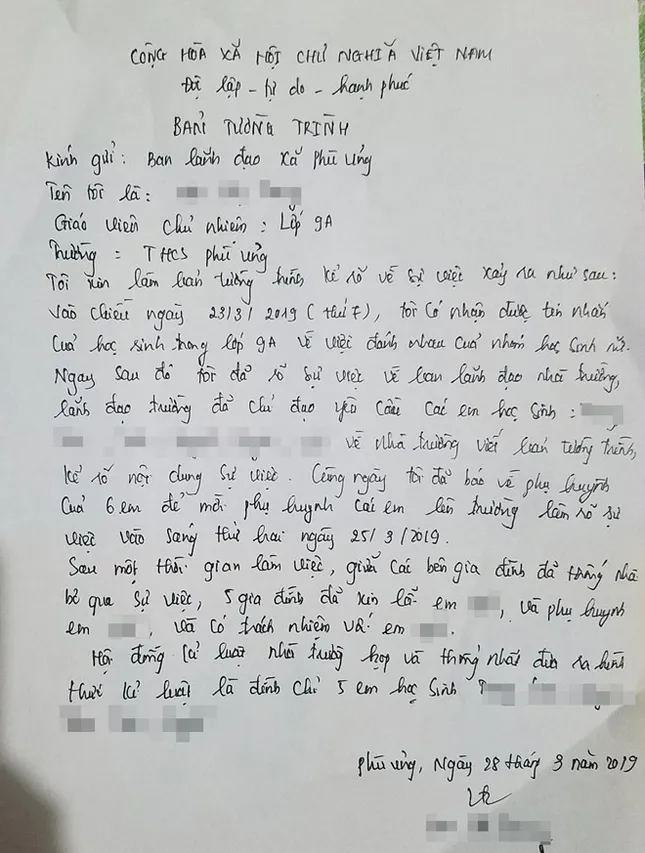 CỘNG HÒA XÃ HỘI CHỦ NGHĨA VIỆT NAM
Độ lập - tự do - hạnh phúc
BẢN TƯỜNG TRÌNH
Kính gửi: Ban lãnh đạo xã phù ủng
Tên tôi là:
Giáo viên chủ nhiệm: Lớp 9A
Trường: THCS phù ủng
Tôi xin làm bản tường trình kể rõ về sự việc xảy ra như sau:
Vào chiều ngày 23/3/2019 (thứ 7), tôi có nhận được tin nhắn
Của học sinh trong lớp 9A về việc đánh nhau của nhóm học sinh nữ.
Ngay sau đó tôi đã rõ sự việc về ban lãnh đạo nhà trường,
lãnh đạo trường đã chỉ đạo yêu cầu các em học sinh:
về nhà trường viết bản tường trình,
kể rõ nội dung sự việc. Cùng ngày tôi đã báo về phụ huynh
Của 6 em để mời phụ huynh các em lên trường làm rõ sự
việc vào sáng thứ hai ngày 25/3/2019.
Sau một thời gian làm việc, giữa các bên gia đình đã thống nhấ
bỏ qua sự việc, 5 gia đình đã xin lỗi em , và phụ huynh
em , và có trách nhiệm với em .
Hội đồng kỉ luật nhà trường họp và thống nhất đưa ra hình
thức kỉ luật là đình chỉ 5 em học sinh
Phù ủng, Ngày 28 tháng 3 năm 2019